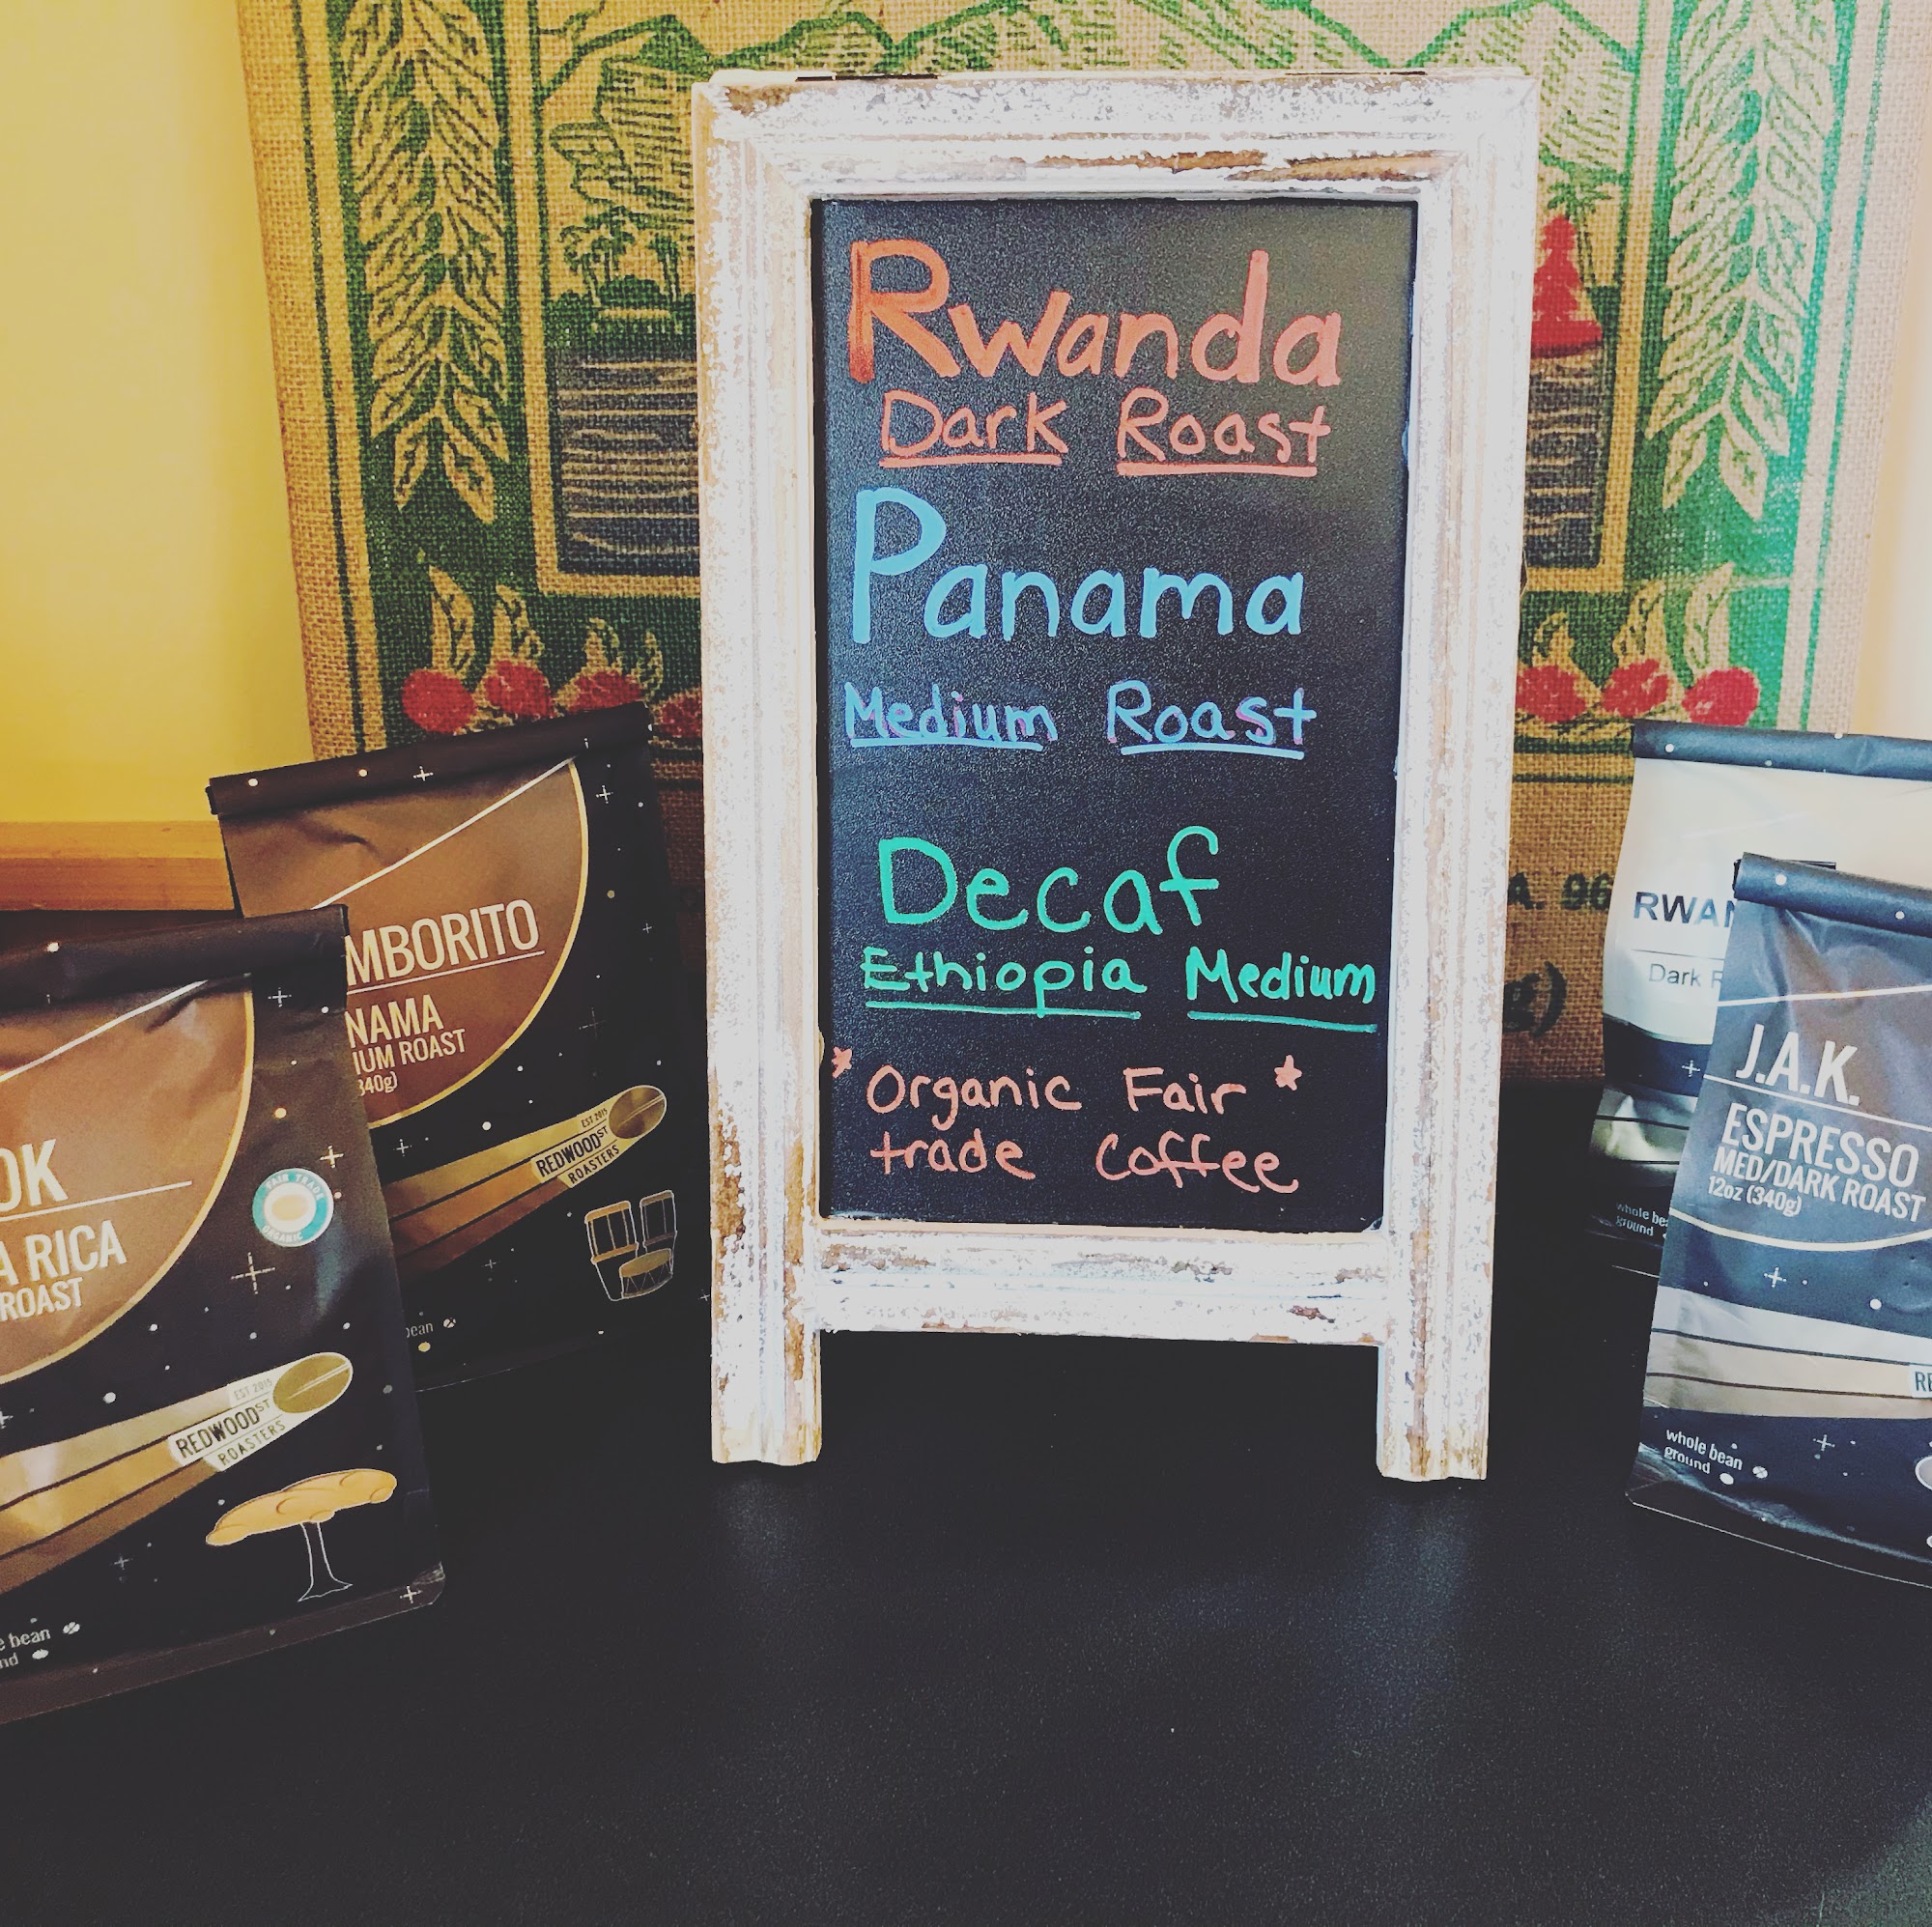 Rwanda
Dark Roast
Panama
Medium Roast
Decaf
Ethiopia Medium
* Organic Fair *
trade Coffee
MBORITO
NAMA
IUM ROAST
340g)
EST 2015
REDWOOD ST
ROASTERS
bean
OK
A RICA
ROAST
FAIR TRADE
ORGANIC
EST 2015
REDWOOD ST
ROASTERS
e bean
nd
RWAN
Dark R
whole be
ground
J.A.K.
ESPRESSO
MED/DARK ROAST
12oz (340g)
RE
whole bean
ground
A 96
g)